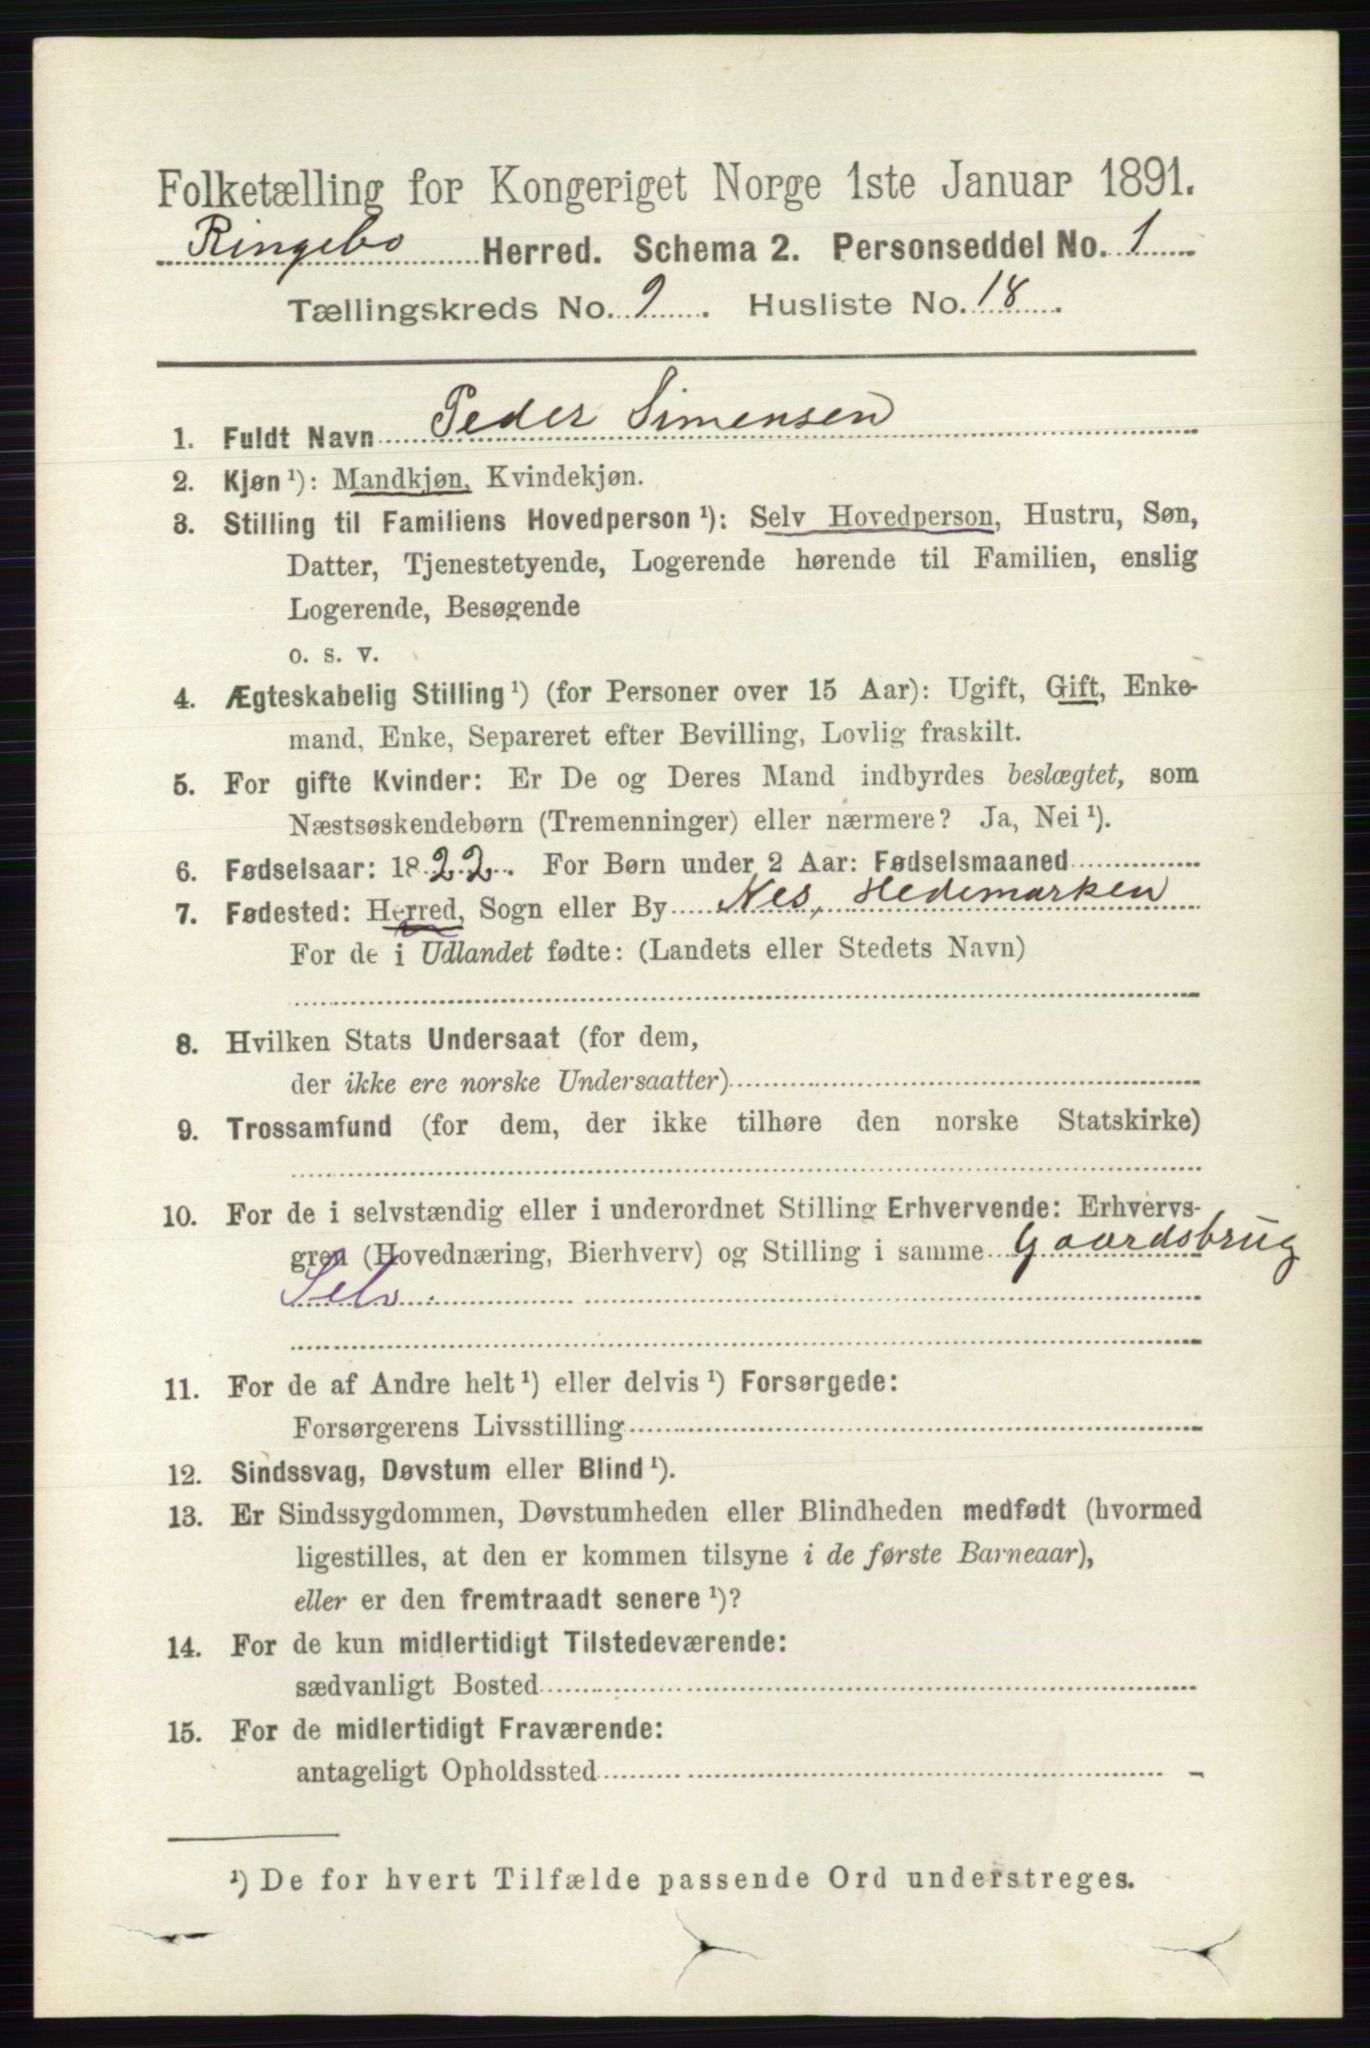 Folketælling for Kongeriget Norge 1ste Januar 1891.
Ringebo Herred. Schema 2. Personseddel No. 1
Tællingskreds No. 9. Husliste No. 18.
1. Fuldt Navn Peder Simensen
2. Kjøn ¹): Mandkjøn, Kvindekjøn.
3. Stilling til Familiens Hovedperson ¹): Selv Hovedperson, Hustru, Søn,
Datter, Tjenestetyende, Logerende hørende til Familien, enslig
Logerende, Besøgende
o. s. v.
4. Ægteskabelig Stilling ¹) (for Personer over 15 Aar): Ugift, Gift, Enke-
mand, Enke, Separeret efter Bevilling, Lovlig fraskilt.
5. For gifte Kvinder: Er De og Deres Mand indbyrdes beslægtet, som
Næstsøskendebørn (Tremenninger) eller nærmere? Ja, Nei ¹).
6. Fødselsaar: 1822. For Børn under 2 Aar: Fødselsmaaned
7. Fødested: Herred, Sogn eller By Nes, Hedemarken
For de i Udlandet fødte: (Landets eller Stedets Navn)
8. Hvilken Stats Undersaat (for dem,
der ikke ere norske Undersaatter)
9. Trossamfund (for dem, der ikke tilhøre den norske Statskirke)
10. For de i selvstændig eller i underordnet Stilling Erhvervende: Erhvervs-
gren (Hovednæring, Bierhverv) og Stilling i samme Gaardsbrug
Selv.
11. For de af Andre helt ¹) eller delvis ¹) Forsørgede:
Forsørgerens Livsstilling
12. Sindssvag, Døvstum eller Blind ¹).
13. Er Sindssygdommen, Døvstumheden eller Blindheden medfødt (hvormed
ligestilles, at den er kommen tilsyne i de første Barneaar),
eller er den fremtraadt senere ¹)?
14. For de kun midlertidigt Tilstedeværende:
sædvanligt Bosted
15. For de midlertidigt Fraværende:
antageligt Opholdssted
¹) De for hvert Tilfælde passende Ord understreges.